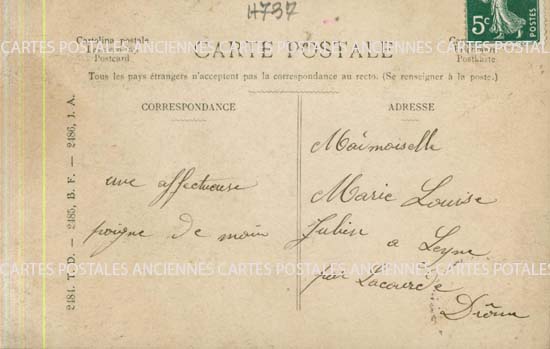 H737
5c
POSTES
Cartolina postale
Postcard
CARTE POSTALE
Postkarte
Tous les pays étrangers n'acceptent pas la correspondance au recto. (Se renseigner à la poste.)
CORRESPONDANCE
ADRESSE
2484. T. D. — 2485, B. F. — 2486, I. A.
une affectueuse
poigne de main
Marie Louise
Julien
a
par
Drôme
CARTES POSTALES ANCIENNES CARTES POSTALES ANCIENNES CARTES POSTALES
CARTES POSTALES ANCIENNES CARTES POSTALES ANCIENNES CARTES POSTALES